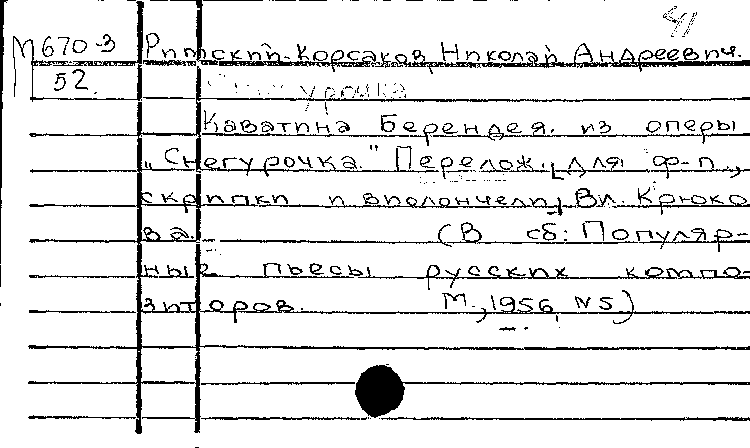 41
М670-3 Римский-Корсаков, Николай Андреевич.
52. Снегурочка
Каватина Берендея из оперы
„Снегурочка." Перелож. [для ф-п.,
скрипки и виолончели] Вл. Крюко
ва. (В сб: Популяр-
ные пьесы русских компо-
зиторов. М., 1956, №5.)